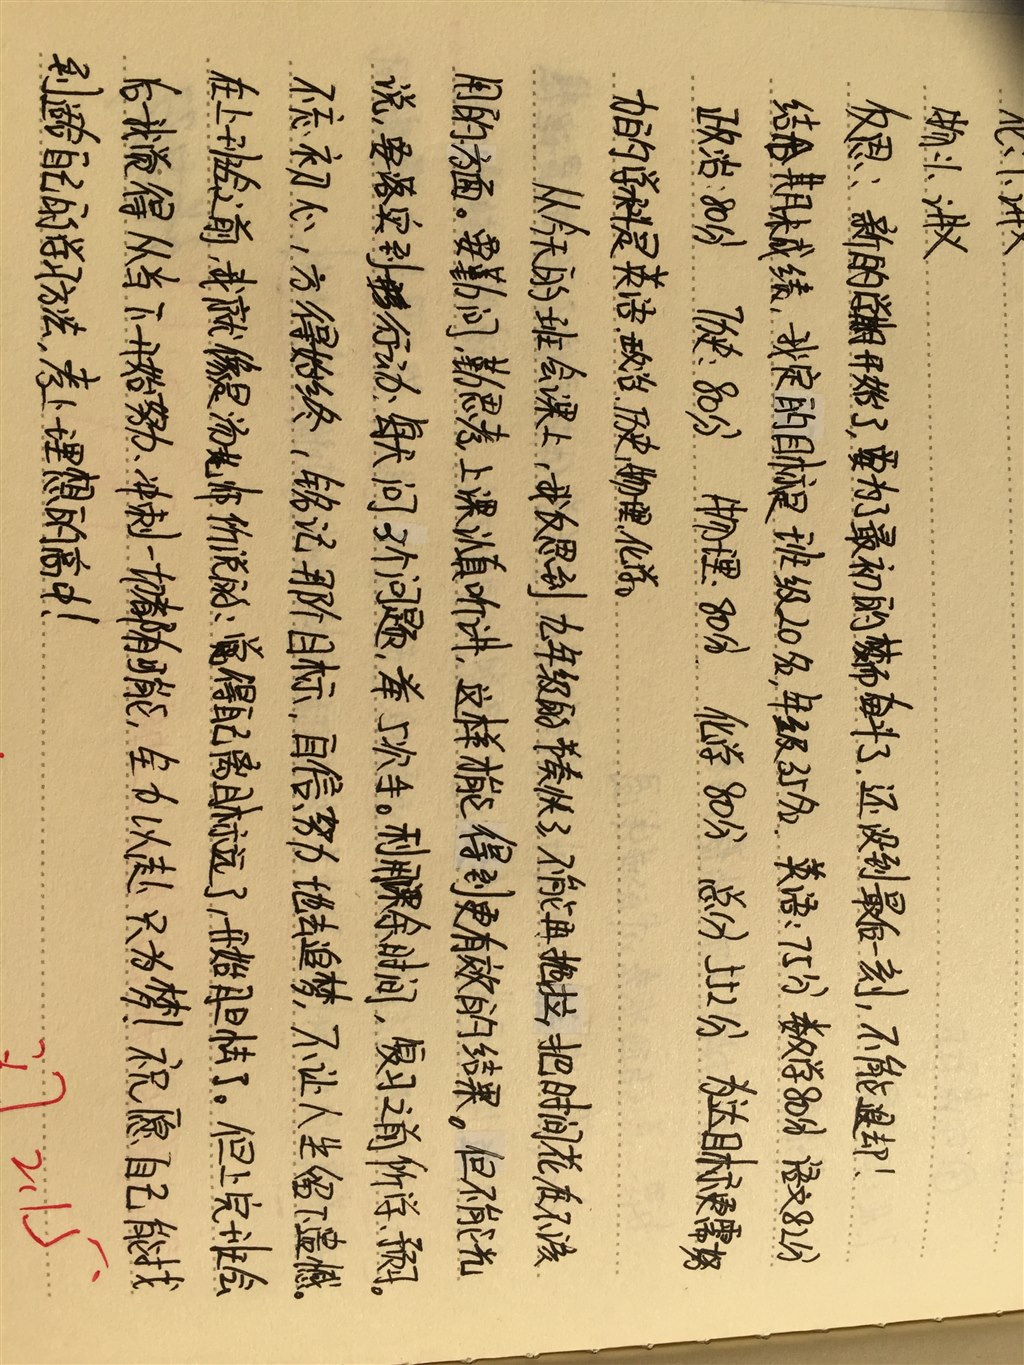 化: 1、讲义
物: 1、讲义
反思：新的学期开始了，要为了最初的梦而奋斗了，还没到最后一刻，不能退却！
结合期末成绩，我定的目标是班级20名，年级35名 英语：75分 数学80分 语文82分
政治：80分 历史：80分 物理80分 化学80分 总分552分 为达目标更需努
力的学科是英语.政治.历史，物理，化学。
从今天的班会课上，我反思到九年级的节奏快了，不能再拖拉，把时间花在不该
用的方面。要勤问，勤思考，上课认真听讲，这样才能得到更有效的结果。但不能光
说，要落实到行动，每天问3个问题，举5次手。利用课余时间，复习之前所学、预习。
不忘初心，方得始终，铭记那个目标，自信、努力地去追梦，不让人生留下遗憾。
在上班会之前，我就像是汤老师所说的：觉得自己离目标远了，开始胆怯了。但上完班会
后我觉得从当下开始努力、冲刺一切都有可能，全力以赴，只为梦！祝愿自己能找
到适合自己的学习方法，考上理想的高中！